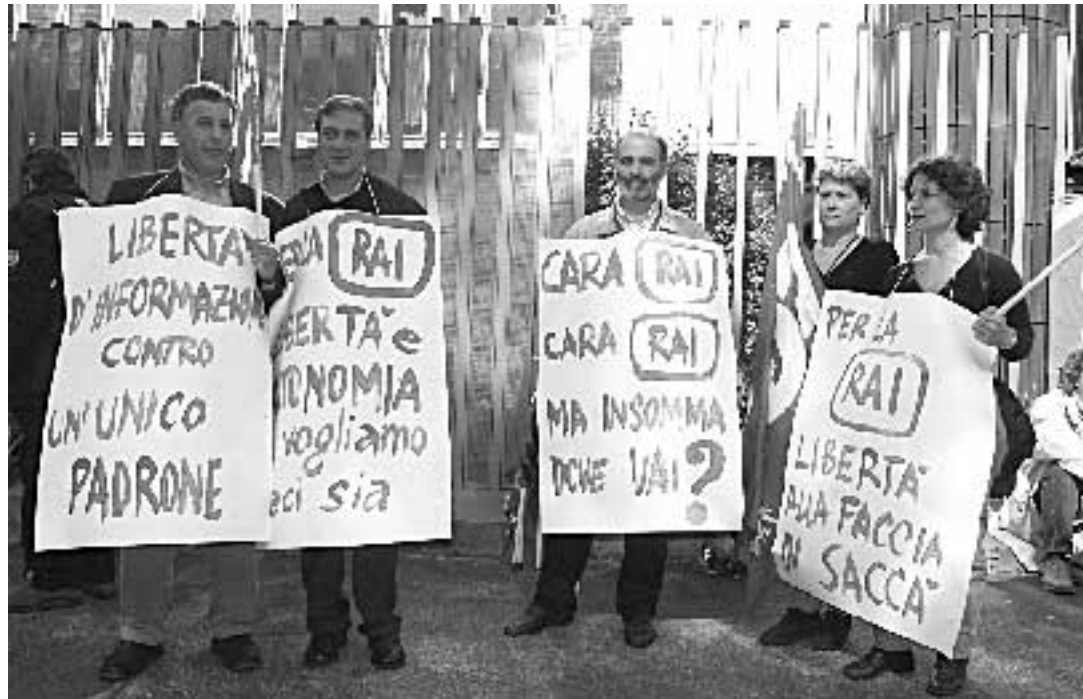 LIBERTA'
D'INFORMAZIONE
CONTRO
UN'UNICO
PADRONE
RAI
LIBERTA' e
AUTONOMIA
vogliamo
ci sia
CARA RAI
CARA RAI
MA INSOMMA
DOVE VAI?
PER LA
RAI
LIBERTA'
ALLA FACCIA
DI SACCA'